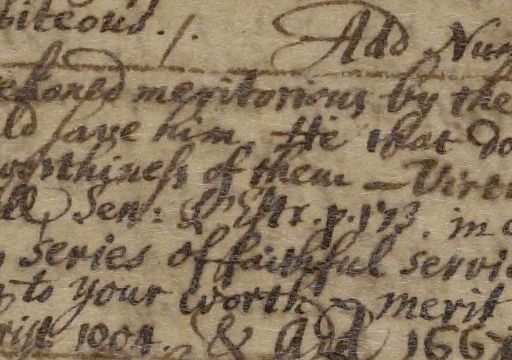 biteous. /. Add Num
reckoned meritorious by the
ld save him He that do
worthiness of them – Virtu
ll, Sen: & Estr. p. 173. in
series of faithful servic
to your worth & merit
rist 1004. & Add 1667